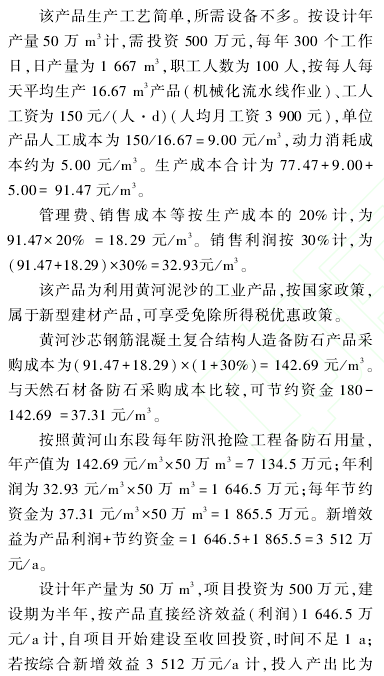 该产品生产工艺简单,所需设备不多。按设计年
产量 50 万 m³计,需投资 500 万元,每年 300 个工作
日,日产量为 1 667 m³,职工人数为 100 人,按每人每
天平均生产 16.67 m³产品(机械化流水线作业)、工人
工资为 150 元/(人·d)(人均月工资 3 900 元),单位
产品人工成本为 150/16.67=9.00 元/m³,动力消耗成
本约为 5.00 元/m³。生产成本合计为 77.47+9.00+
5.00= 91.47 元/m³。
管理费、销售成本等按生产成本的 20%计,为
91.47×20% =18.29 元/m³。销售利润按 30%计,为
(91.47+18.29)×30%=32.93元/m³。
该产品为利用黄河泥沙的工业产品,按国家政策,
属于新型建材产品,可享受免除所得税优惠政策。
黄河沙芯钢筋混凝土复合结构人造备防石产品采
购成本为(91.47+18.29)×(1+30%)= 142.69 元/m³。
与天然石材备防石采购成本比较,可节约资金 180-
142.69 =37.31 元/m³。
按照黄河山东段每年防汛抢险工程备防石用量,
年产值为 142.69 元/m³×50 万 m³=7 134.5 万元;年利
润为 32.93 元/m³×50 万 m³=1 646.5 万元;每年节约
资金为 37.31 元/m³×50 万 m³=1 865.5 万元。新增效
益为产品利润+节约资金=1 646.5+1 865.5=3 512 万
元/a。
设计年产量为 50 万 m³,项目投资为 500 万元,建
设期为半年,按产品直接经济效益(利润)1 646.5 万
元/a 计,自项目开始建设至收回投资,时间不足 1 a;
若按综合新增效益 3 512 万元/a 计,投入产出比为